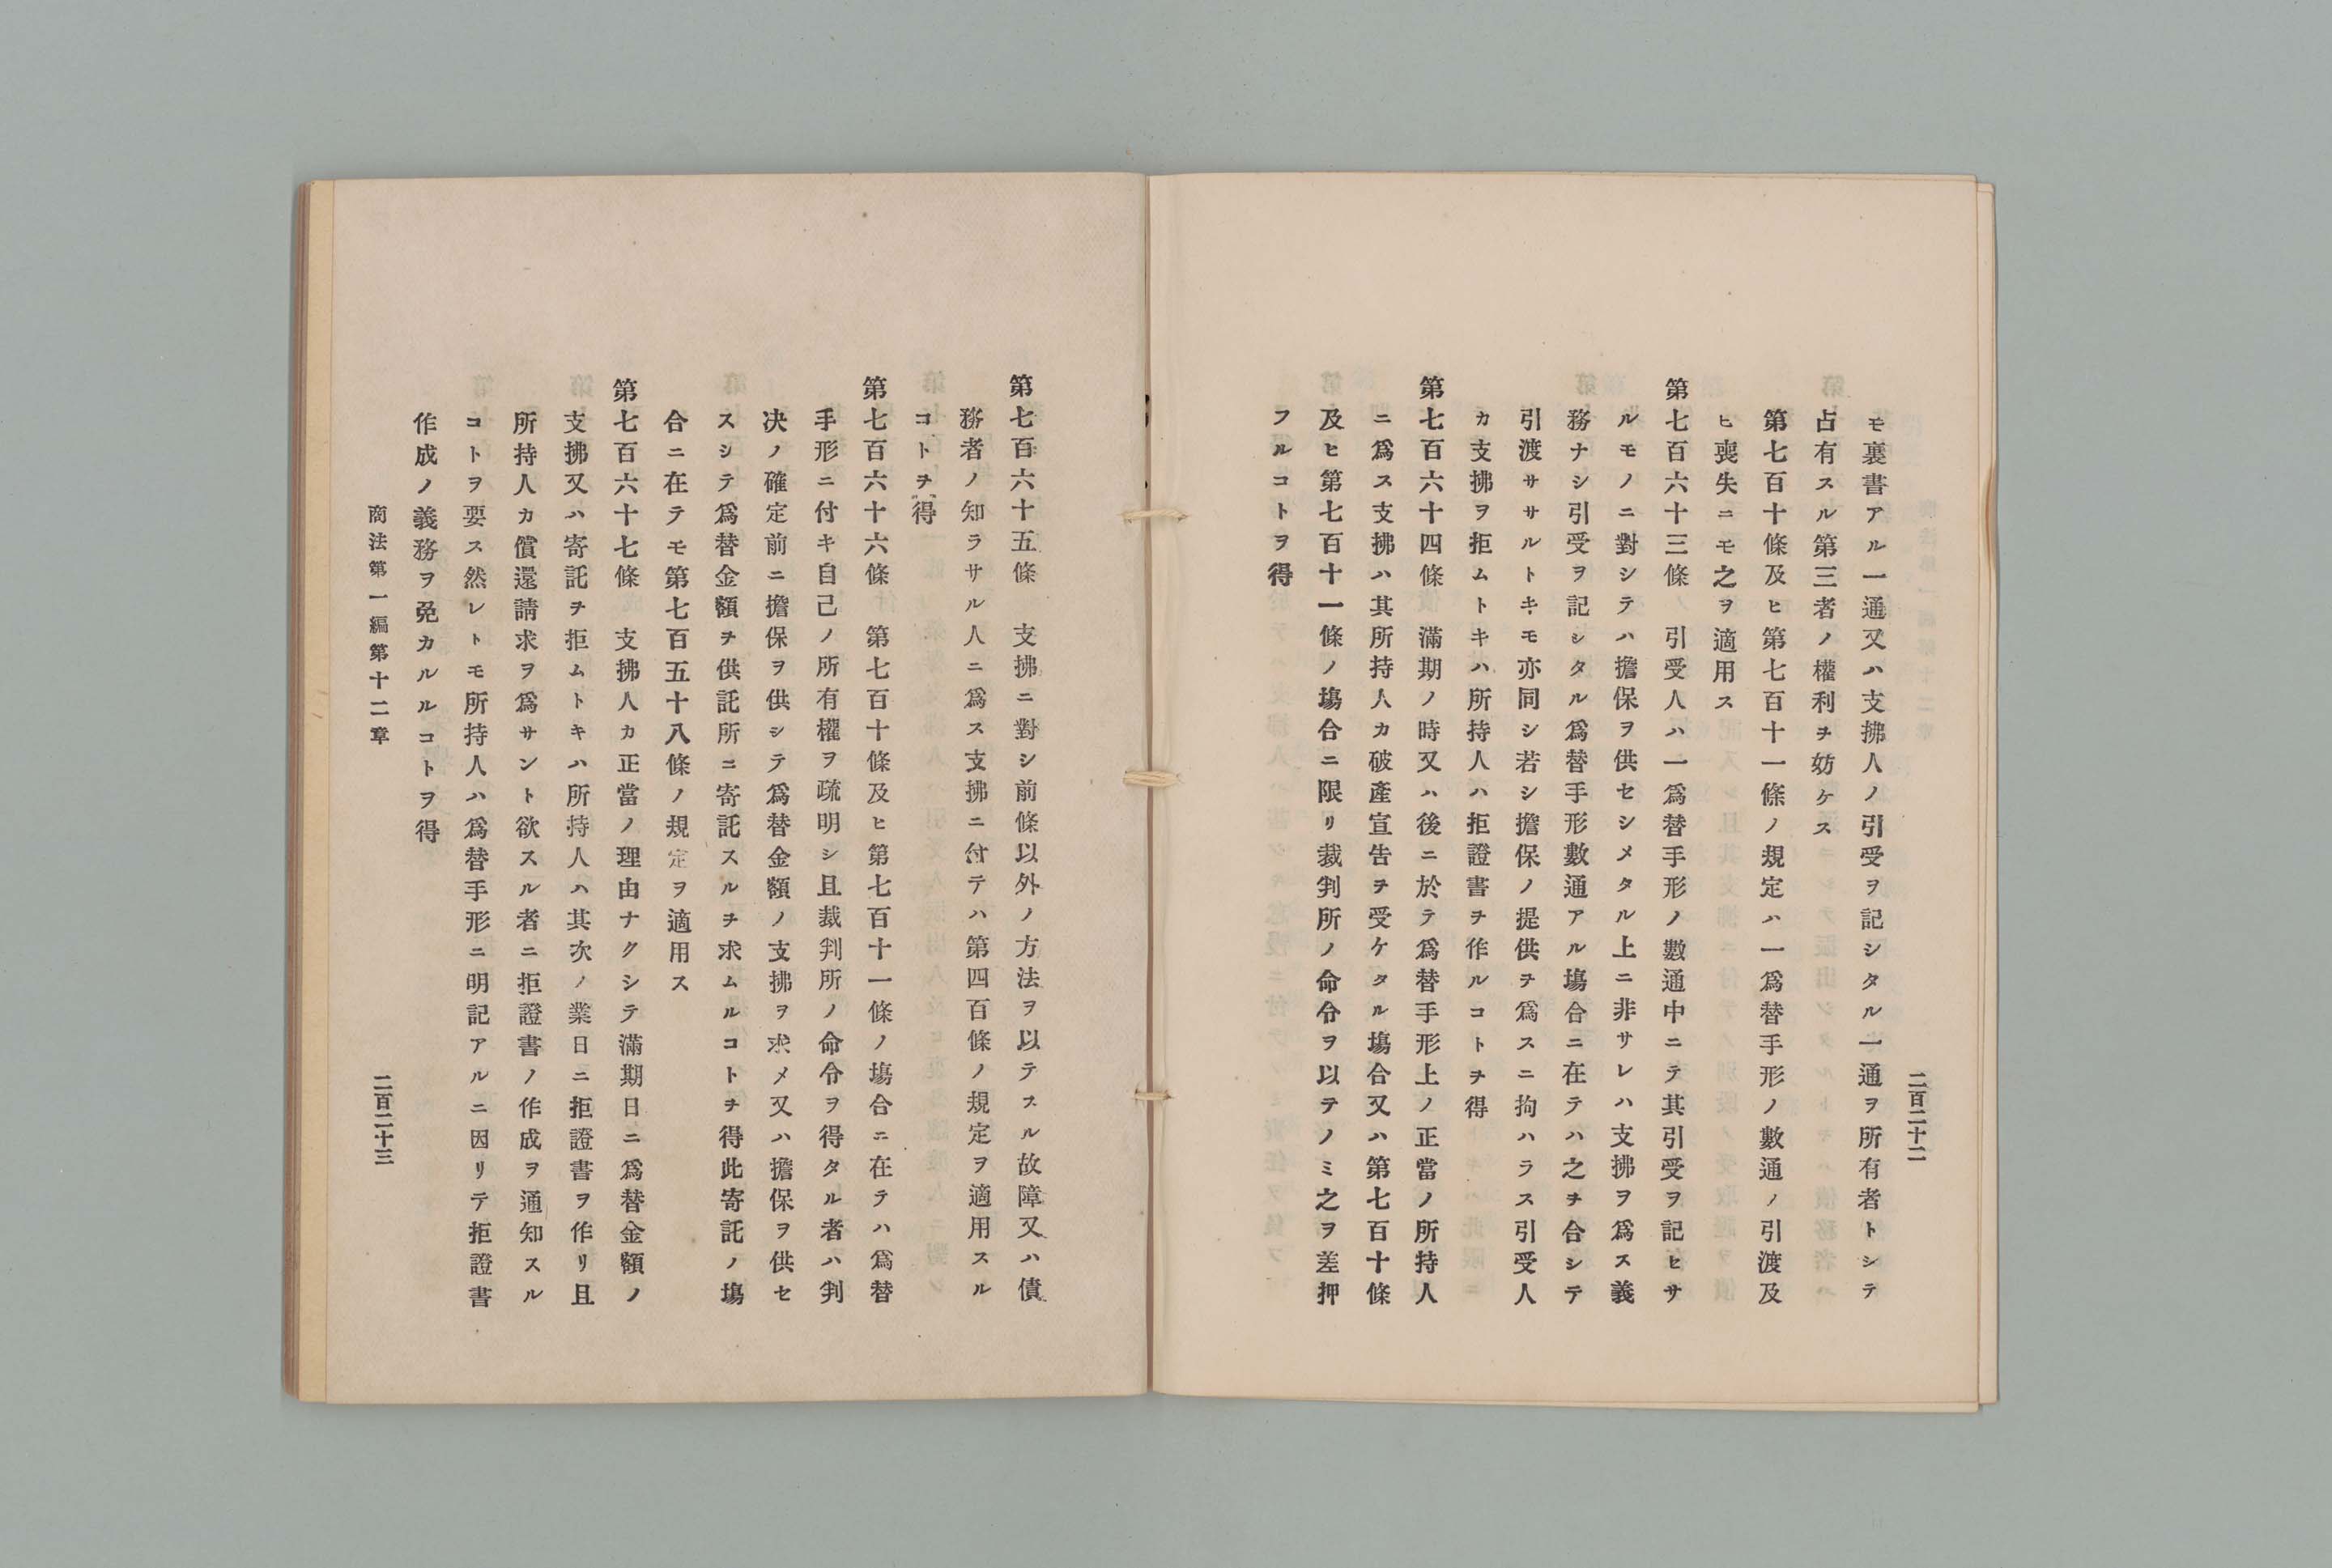 二百二十二
モ裏書アル一通又ハ支拂人ノ引受ヲ記シタル一通ヲ所有者トシテ
占有スル第三者ノ權利ヲ妨ケス
第七百十條及ヒ第七百十一條ノ規定ハ一爲替手形ノ數通ノ引渡及
ヒ喪失ニモ之ヲ適用ス
第七百六十三條　引受人ハ一爲替手形ノ數通中ニテ其引受ヲ記ヒサ
ルモノニ對シテハ擔保ヲ供セシメタル上ニ非サレハ支拂ヲ爲ス義
務ナシ引受ヲ記シタル爲替手形數通アル塲合ニ在テハ之ヲ合シテ
引渡ササルトキモ亦同シ若シ擔保ノ提供ヲ爲スニ拘ハラス引受人
カ支拂ヲ拒ムトキハ所持人ハ拒證書ヲ作ルコトヲ得
第七百六十四條　滿期ノ時又ハ後ニ於テ爲替手形上ノ正當ノ所持人
ニ爲ス支拂ハ其所持人カ破產宣告ヲ受ケタル塲合又ハ第七百十條
及ヒ第七百十一條ノ塲合ニ限リ裁判所ノ命令ヲ以テノミ之ヲ差押
フルコトヲ得
第七百六十五條　支拂ニ對シ前條以外ノ方法ヲ以テスル故障又ハ債
務者ノ知ラサル人ニ爲ス支拂ニ付テハ第四百條ノ規定ヲ適用スル
コトヲ得
第七百六十六條　第七百十條及ヒ第七百十一條ノ塲合ニ在テハ爲替
手形ニ付キ自己ノ所有權ヲ疏明シ且裁判所ノ命令ヲ得タル者ハ判
决ノ確定前ニ擔保ヲ供シテ爲替金額ノ支拂ヲ求メ又ハ擔保ヲ供セ
スシテ爲替金額ヲ供託所ニ寄託スルヲ求ムルコトヲ得此寄託ノ塲
合ニ在テモ第七百五十八條ノ規定ヲ適用ス
第七百六十七條　支拂人カ正當ノ理由ナクシテ滿期日ニ爲替金額ノ
支拂又ハ寄託ヲ拒ムトキハ所持人ハ其次ノ業日ニ拒證書ヲ作リ且
所持人カ償還請求ヲ爲サント欲スル者ニ拒證書ノ作成ヲ通知スル
コトヲ要ス然レトモ所持人ハ爲替手形ニ明記アルニ因リテ拒證書
作成ノ義務ヲ免カルルコトヲ得
商法第一編第十二章
二百二十三